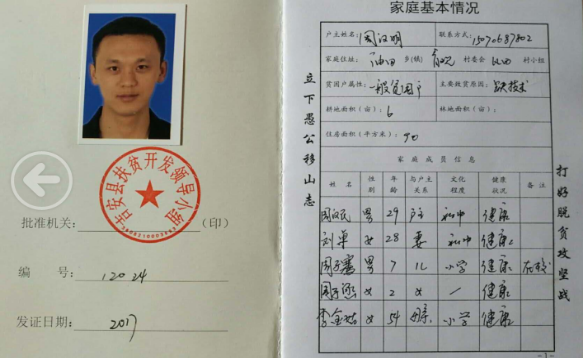 吉安县扶贫开发领导小组
批准机关：（印）
编 号：12024
发证日期：2017
家庭基本情况
户主姓名：周汉明 联系方式：
家庭住址：油田 乡(镇) 村委会 村小组
贫困户属性：一般贫困户 主要致贫原因：缺技术
耕地面积（亩）：6 林地面积（亩）：
住房面积（平方米）：90
家庭成员信息
姓名 性别 年龄 与户主关系 文化程度 健康状况 备注
男 29 户主 初中 健康
刘 女 28 妻 初中 健康
周 男 7 儿 小学 健康 在校
周 女 2 女 / 健康
李金 女 54 母亲 小学 健康
立下愚公移山志
打好脱贫攻坚战
-1-